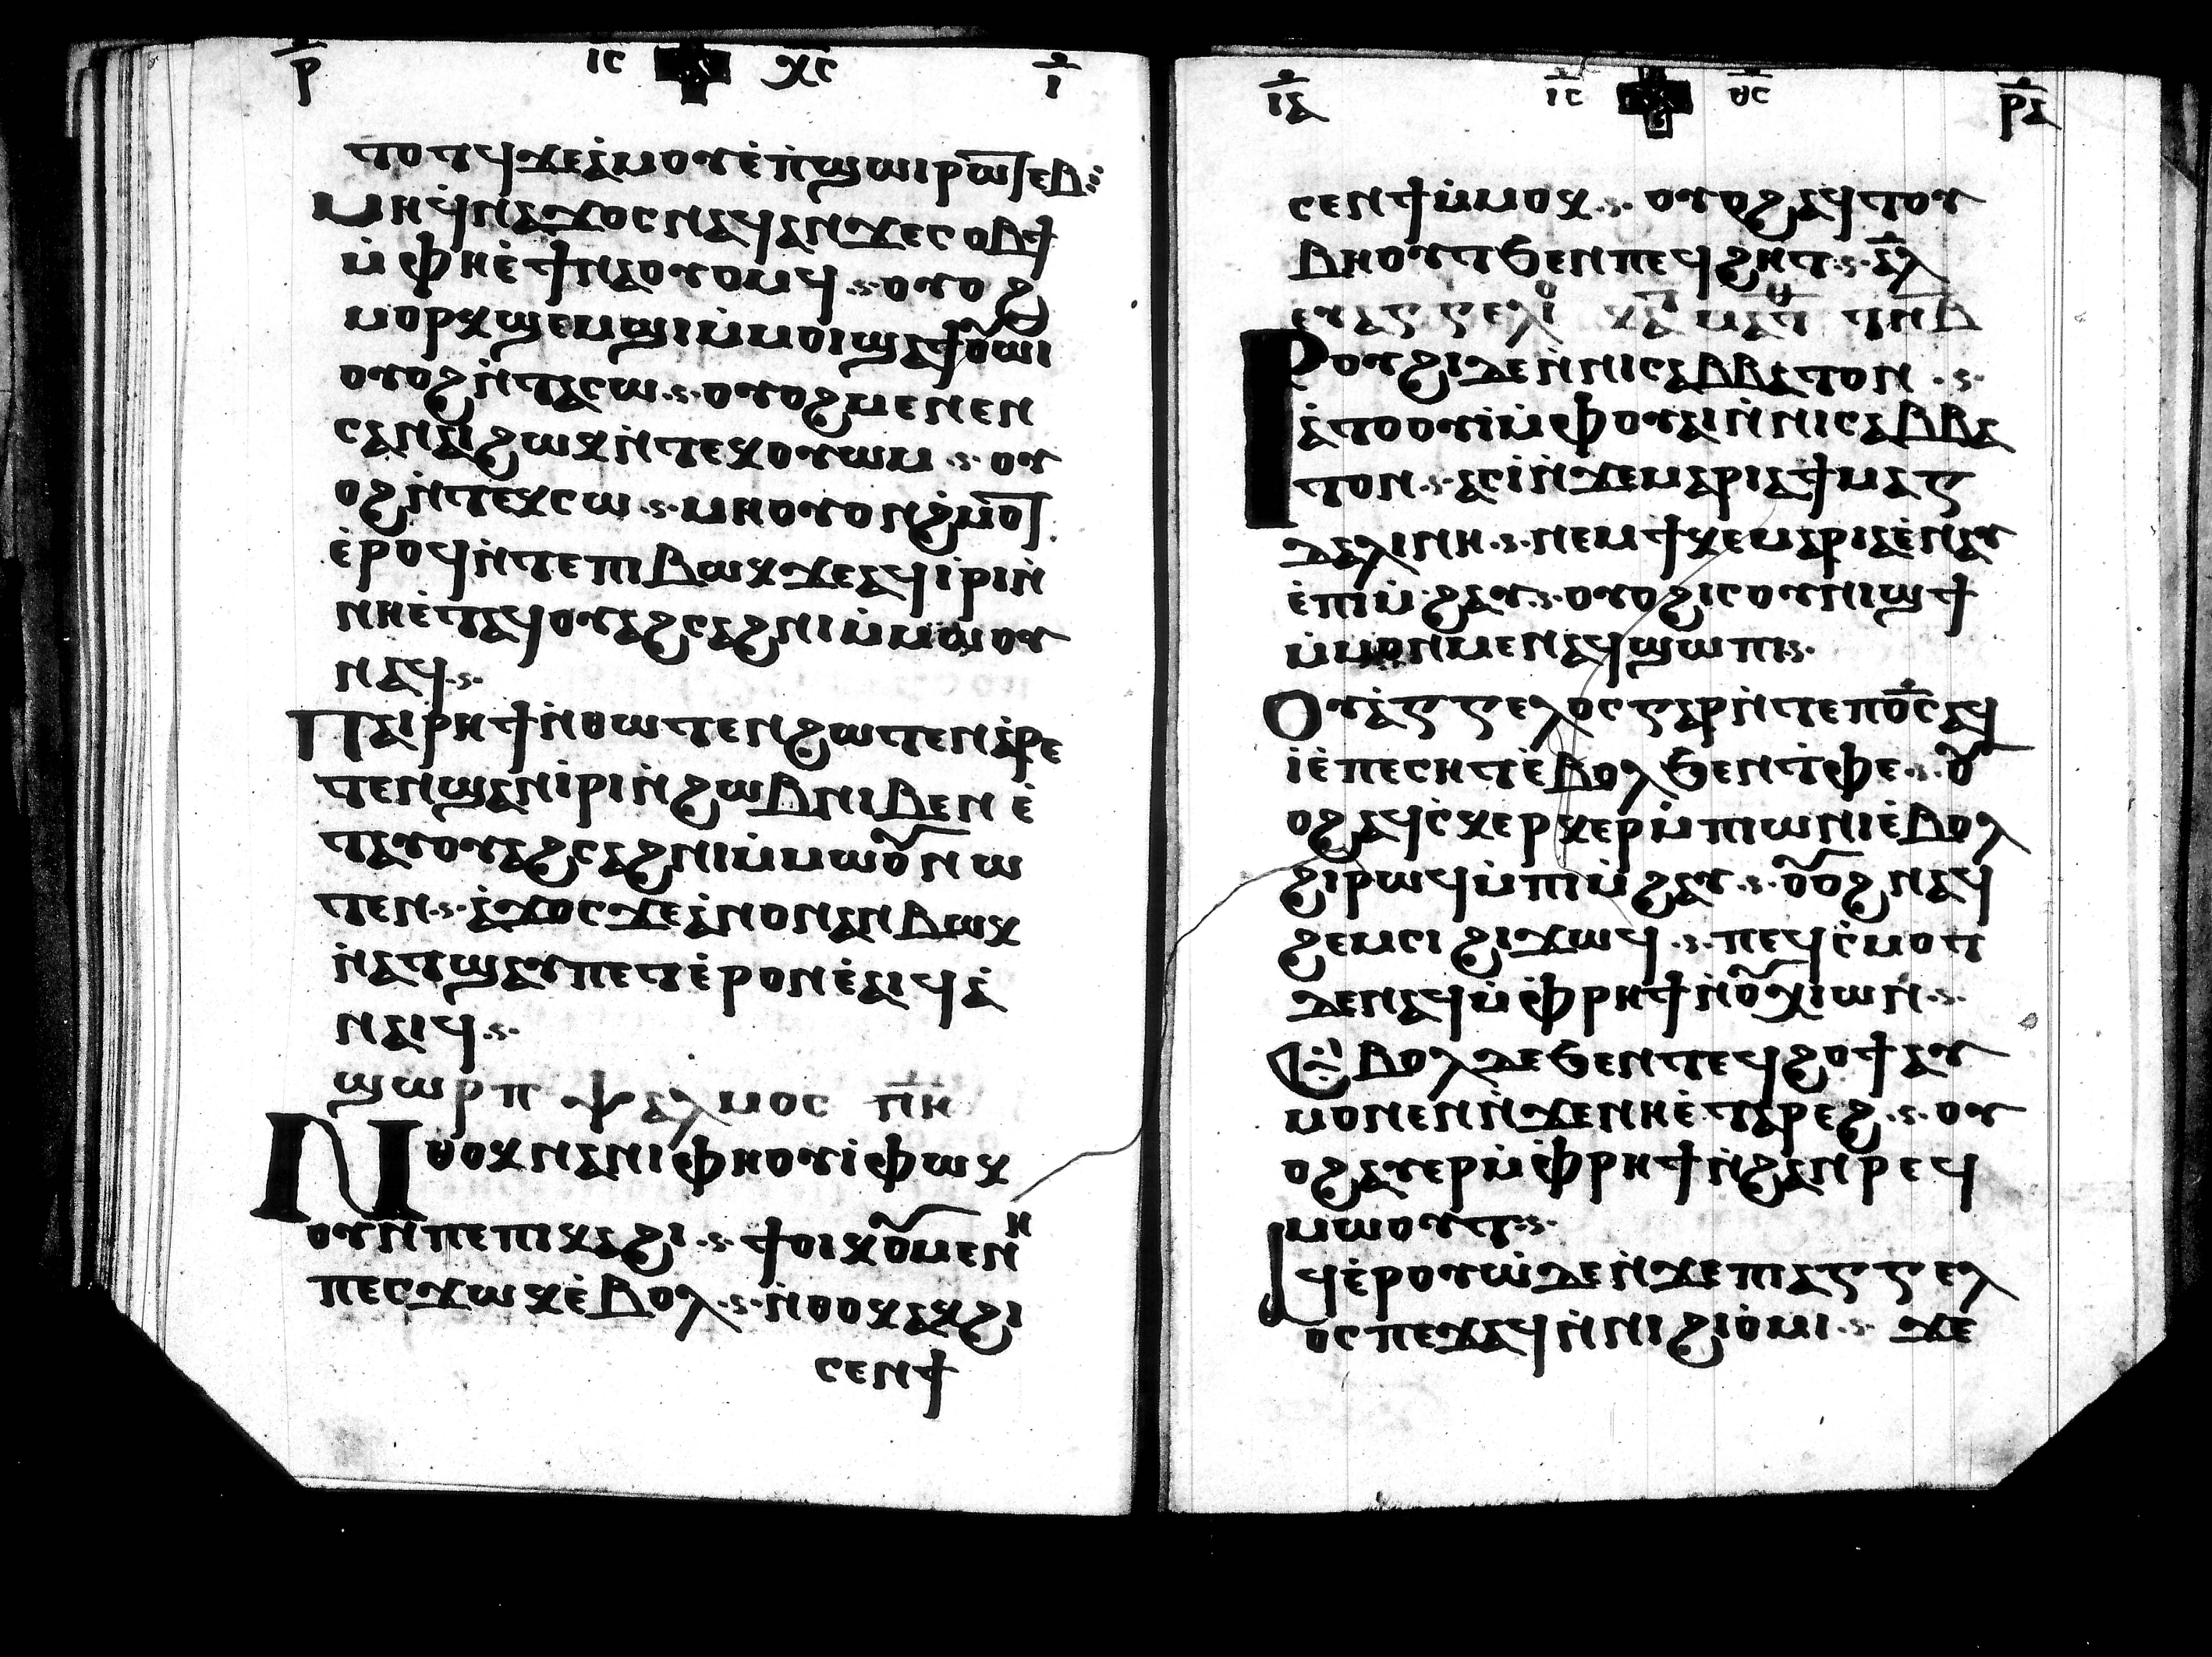 ⲣ̅ ⲓⲥ ⲭ̅ⲥ ⲓ̅
ⲧⲟⲧϥ ϫⲉ ⲁ̀ⲙⲟⲩ ⲉ̀ⲡ̀ϣⲱⲓ ⲣⲱⲧⲉⲃ
ⲙⲏ ϥ̀ⲛⲁϫⲟⲥ ⲛⲁϥ ⲁⲛ ϫⲉ ⲥⲟⲃϯ
ⲙ̀ⲫⲏ ⲉ̀ϯⲛⲁⲟⲩⲟⲙϥ ⲟⲩⲟϩ
ⲙⲟⲣⲕ ϣⲉⲙϣⲓ ⲙ̀ⲙⲟⲓ ϣⲁϯⲟⲩⲱⲓ
ⲟⲩⲟϩ ⲛ̀ⲧⲁⲥⲱ ⲟⲩⲟϩ ⲙⲉⲛⲉⲛ
ⲥⲁ ⲛⲁⲓ ϩⲱⲕ ⲛ̀ⲧⲉⲕⲟⲩⲱⲙ ⲟⲩ
ⲟϩ ⲛ̀ⲧⲉⲕⲥⲱ ⲙⲏ ⲟⲩⲟⲛ ϩ̀ⲙⲟⲧ
ⲉ̀ⲣⲟϥ ⲛ̀ⲧⲉ ⲡⲓⲃⲱⲕ ϫⲉ ⲁϥⲓ̀ⲣⲓ ⲛ̀
ⲛⲏ ⲉ̀ⲧⲁϥⲟⲩⲁϩⲥⲁϩⲛⲓ ⲙ̀ⲙⲱⲟⲩ
ⲛⲁϥ
Ⲡⲁⲓⲣⲏϯ ⲛ̀ⲑⲱⲧⲉⲛ ϩⲱⲧⲉⲛ ⲁ̀ⲣⲉ
ⲧⲉⲛϣⲁⲛⲓ̀ⲣⲓ ⲛ̀ϩⲱⲃ ⲛⲓⲃⲉⲛ ⲉ̀
ⲧⲁⲩⲟⲩⲁϩⲥⲁϩⲛⲓ ⲙ̀ⲙⲱⲟⲩ ⲛⲱ
ⲧⲉⲛ ⲁ̀ϫⲟⲥ ϫⲉ ⲁ̀ⲛⲟⲛ ϩⲁⲛⲃⲱⲕ
ⲛ̀ⲁⲧϣⲁⲩ ⲡⲉⲧⲉ̀ⲣⲟⲛ ⲉ̀ⲁⲓϥ ⲁ̀
ⲛⲁⲓϥ
ϣⲱⲣⲡ ⲯⲁⲗⲙⲟⲥ ⲡ̅ⲏ̅
Ⲛⲑⲟⲕ ⲛⲁ ⲛⲓⲫⲏⲟⲩⲓ̀ ⲫⲱⲕ
ⲟⲩⲛ ⲡⲉ ⲡⲓⲕⲁϩⲓ ϯⲟⲓⲕⲟⲩⲙⲉⲛⲏ
ⲡⲉⲥϫⲱⲕ ⲉ̀ⲃⲟⲗ ⲛ̀ⲑⲟⲕ ⲁⲕϩⲓ
ⲥⲉⲛϯ
ⲓ̅ⲁ ⲓ̅ⲥ ⲑ̅ⲥ ⲣ̅ⲁ
ⲥⲉⲛϯ ⲙ̀ⲙⲟⲕ ⲟⲩⲟϩ ⲁϥⲧⲟⲩ
ⲃⲏⲟⲩⲧ ϧⲉⲛ ⲡⲉϥϩⲏⲧ ⲁ̅ⲗ
ⲉⲩⲁⲅⲅⲉⲗⲓⲟ ⲕⲁ ⲙⲁⲧⲑ ⲧⲛⲃ
Ⲣⲟⲩϩⲓ ⲇⲉ ⲛ̀ⲛⲓⲥⲁⲃⲃⲁⲧⲟⲛ
ⲁ̀ⲧⲟⲟⲩⲓ̀ ⲙ̀ⲫⲟⲩⲁⲓ ⲛ̀ⲛⲓⲥⲁⲃⲃⲁ
ⲧⲟⲛ ⲁⲥⲓ̀ ⲛ̀ϫⲉ ⲙⲁⲣⲓⲁ ϯⲙⲁⲅ
ⲇⲁⲗⲓⲛⲏ ⲛⲉⲙ ϯⲕⲉⲙⲁⲣⲓⲁ ⲉ̀ⲛⲁⲩ
ⲉ̀ⲡⲓⲙ̀ϩⲁⲩ ⲟⲩⲟϩ ⲓⲥ ⲟⲩⲛⲓϣϯ
ⲙ̀ⲙⲟⲛⲙⲉⲛ ⲁϥϣⲱⲡⲓ
Ⲟⲩⲁ̀ⲅⲅⲉⲗⲟⲥ ⲅⲁⲣ ⲛ̀ⲧⲉ ⲡⲟ̅ⲥ ⲁϥ
ⲓ̀ ⲉ̀ⲡⲉⲥⲏⲧ ⲉ̀ⲃⲟⲗ ϧⲉⲛ ⲧ̀ⲫⲉ ⲟⲩ
ⲟϩ ⲁϥⲥ̀ⲕⲉⲣⲕⲉⲣ ⲙ̀ⲡⲓⲱⲛⲓ ⲉ̀ⲃⲟⲗ
ϩⲓⲣⲱϥ ⲙ̀ⲡⲓⲙ̀ϩⲁⲩ ⲟⲩⲟϩ ⲛⲁϥ
ϩⲉⲙⲥⲓ ϩⲓϫⲱϥ ⲡⲉϥⲥ̀ⲙⲟⲧ
ⲇⲉ ⲛⲁϥ ⲙ̀ⲫ̀ⲣⲏϯ ⲛ̀ⲟⲩⲭⲓⲱⲛ
Ⲉⲃⲟⲗ ⲇⲉ ϧⲉⲛ ⲧⲉϥϩⲟϯ ⲁⲩ
ⲙⲟⲛⲙⲉⲛ ⲛ̀ϫⲉ ⲛⲏ ⲉ̀ⲧⲁⲣⲉϩ ⲟⲩ
ⲟϩ ⲁⲩⲉⲣ ⲙ̀ⲫ̀ⲣⲏϯ ⲛ̀ϩⲁⲛⲣⲉϥ
ⲙⲱⲟⲩⲧ
Ⲁϥⲉ̀ⲣⲟⲩⲱ̀ ⲇⲉ ⲛ̀ϫⲉ ⲡⲓⲁⲅⲅⲉⲗ
ⲟⲥ ⲡⲉϫⲁϥ ⲛ̀ⲛⲓϩⲓⲟ̀ⲙⲓ ϫⲉ